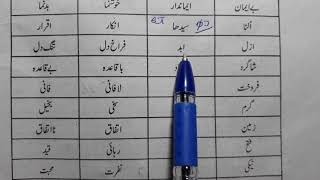 بے ایمان ایماندار خوشنما بدنما
الٹا سیدھا انکار اقرار
ازل ابد فراخ دل تنگ دل
شاگرد باقاعدہ بے قاعدہ
فروخت لافانی فانی
گرم سخی بخیل
زمین اتفاق نااتفاق
فتح رہائی قید
نیکی نفرت محبت